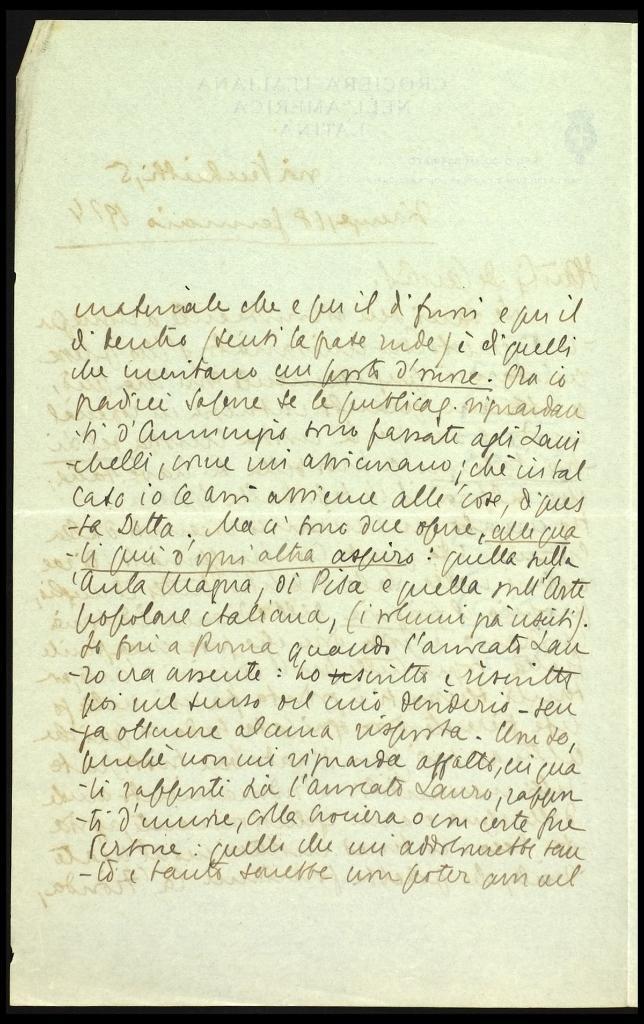 materiale che e per il di fuori e per il
di dentro (senti la frase rude) è di quelli
che meritano un posto d'onore. Ora io
gradirei sapere se le pubblicaz. riguardan
-ti d'Annunzio sono passate agli Zani
-chelli, come mi assicurano; ché in tal
caso io le avrò assieme alle cose, di ques
-ta Ditta. Ma ci sono due opere, alle qua
-li più d'ogni altra aspiro: quella sulla
Aula Magna, di Pisa e quella sull'Arte
popolare italiana, (i volumi già usciti).
Io fui a Roma quando l'aureato Lau
-ro era assente: ho scritto e riscritto
poi nel senso del mio desiderio - sen
-za ottenere alcuna risposta. Non so,
perché non mi riguarda affatto, in qua
-li rapporti sia l'aureato Lauro, rappor
-ti d'umore, colla Crociera o con certe sue
Persone: quello che mi addolorerebbe tan
-to e tanto sarebbe non poter aver nel